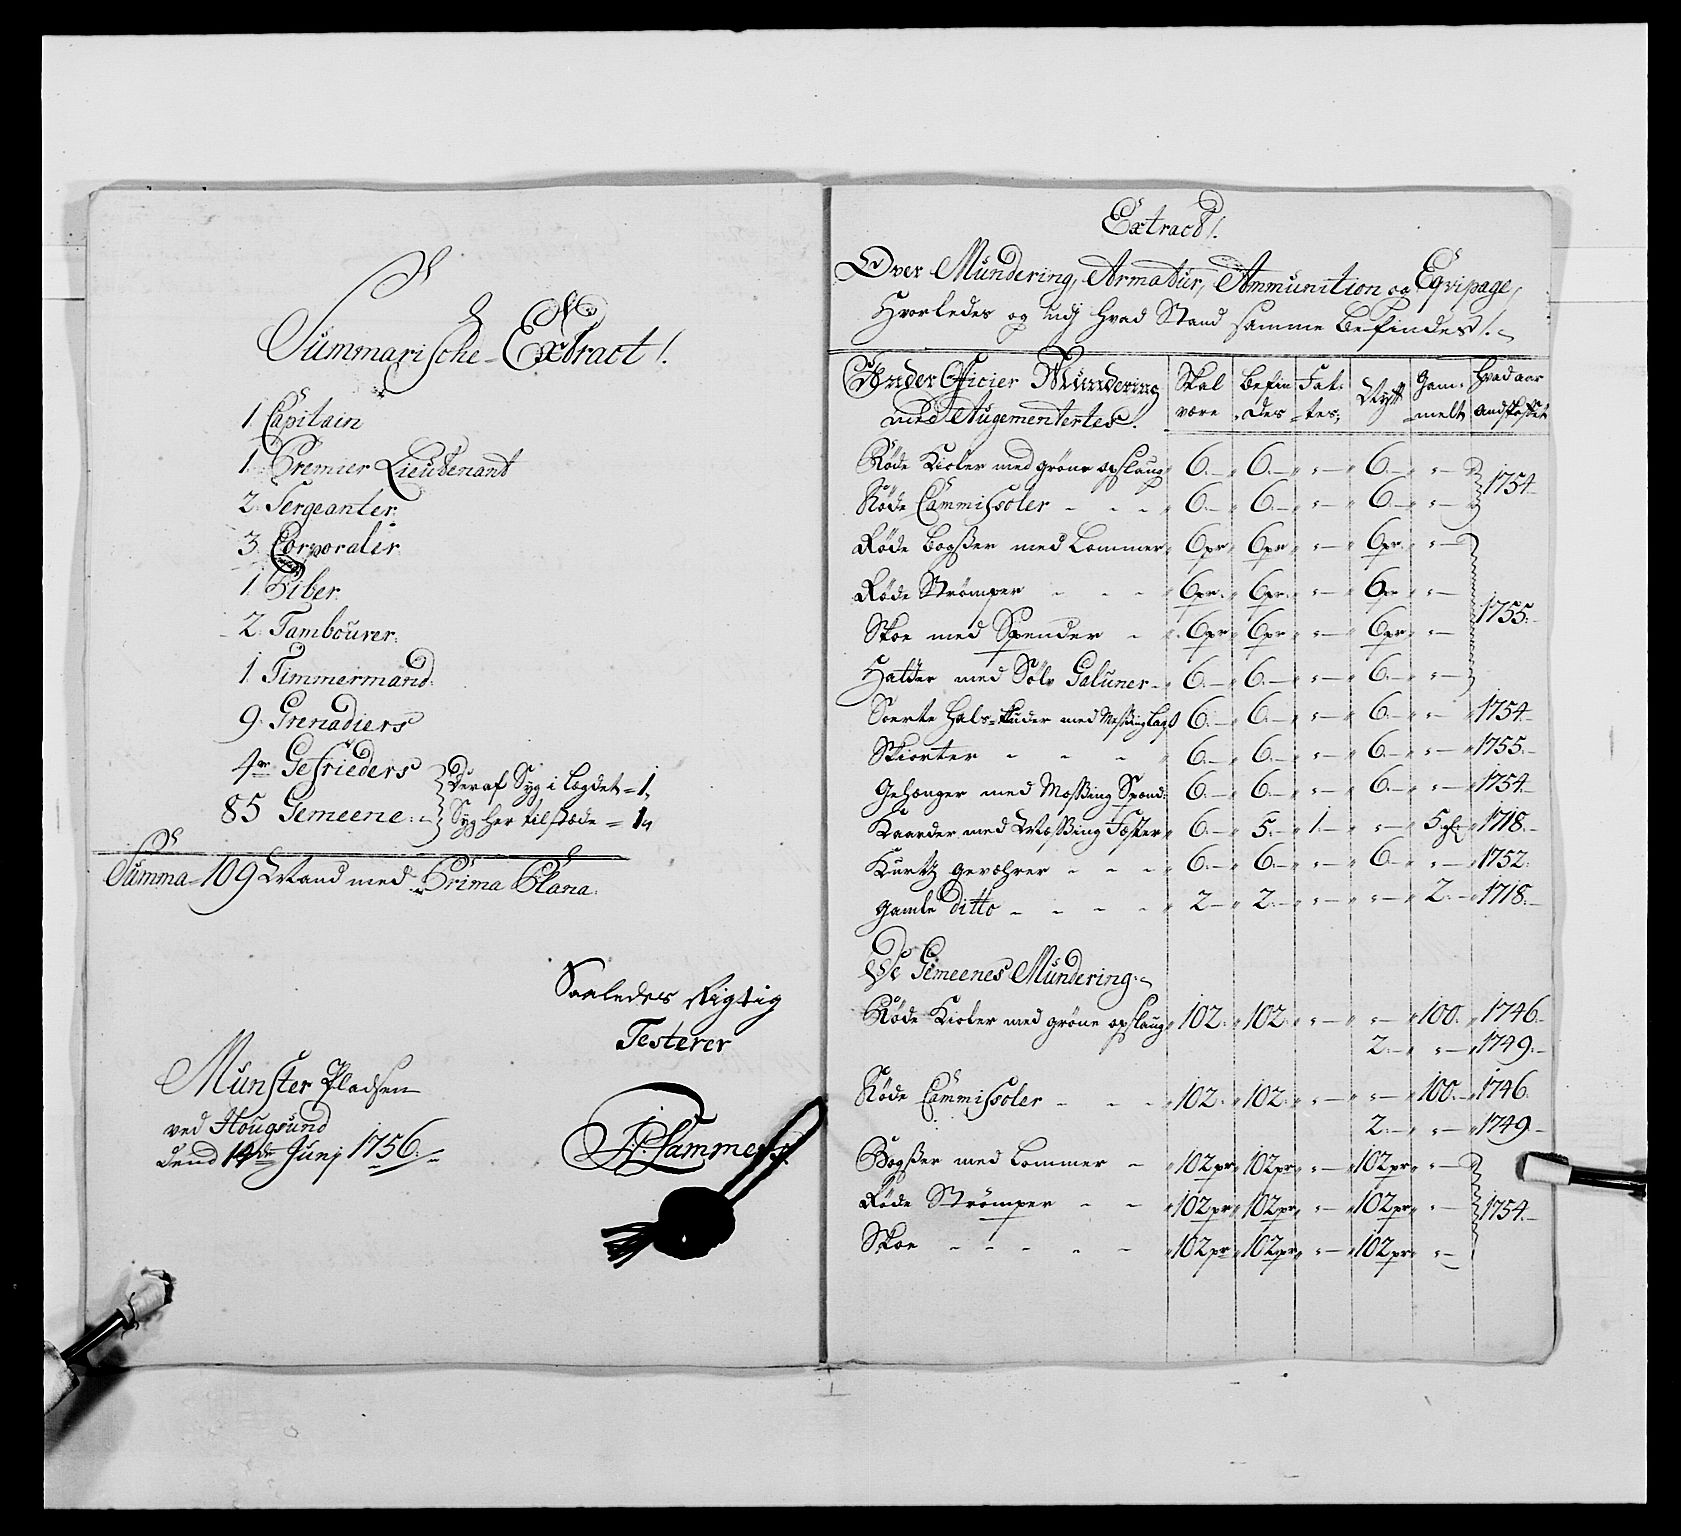 Summarische Extract!
1. Capitain
1. Premier Lieutenant
2. Sergeanter
3. Corporaler
1. Piber
2. Tambourer.
1. Timmermand.
9. Grenadiers
4re Gefrieders
85 Gemeene.
Deraf Syg i Legdet = 1.
Syg her tilstæde = 1.
Summa 109 Mand med Prima Plana.
Saaledes Rigtig
Testerer
Munster Pladsen
ved Hougsund
dend Junj 1756.
Extract!
Over Mundering, Armatur, Ammunition og Eqvipage,
Hvorledes og udj hvad Stand samme befindes!
Under Officier Mundering med Augementertes! Skal være Befindes Fattes, Nytt Gammelt Hvad aar
Røde Kioler med grøne opslaug 6. 6. 6. 1754
Røde Cammissoler 6. 6. 6.
Røde Bogsßer med Lommer 6pr 6pr 6pr 1755
Røde Strømper 6pr. 6pr. 6pr
Skoe med Spender 6pr 6pr 6pr
Hatter med Sølv Galuner 6. 6. 6.
Soerte Hals-kluder med Meßing 6. 6. 6. 1754
Skiorter 6. 6. 6. 1755.
Gehænger med Mæßing Spænd. 6. 6. 6. 1754
Kaarder med Mæßing Fæster 6. 5. 1. 5 1718.
Kurtz Gevæhrer 6. 6. 6. 1752.
Gamle ditto 2 2. 2. 1718.
De Gemeenes Mundering
Røde Kioler med grøne opslaug 102. 102. 100. 1746.
2. 1749.
Røde Cammissoler 102. 102. 100. 1746.
2. 1749.
Bogsßer med Lommer 102pr 102pr 102pr 1754
Røde Strømper 102pr 102pr 102pr
Skoe 102pr 102pr 102pr